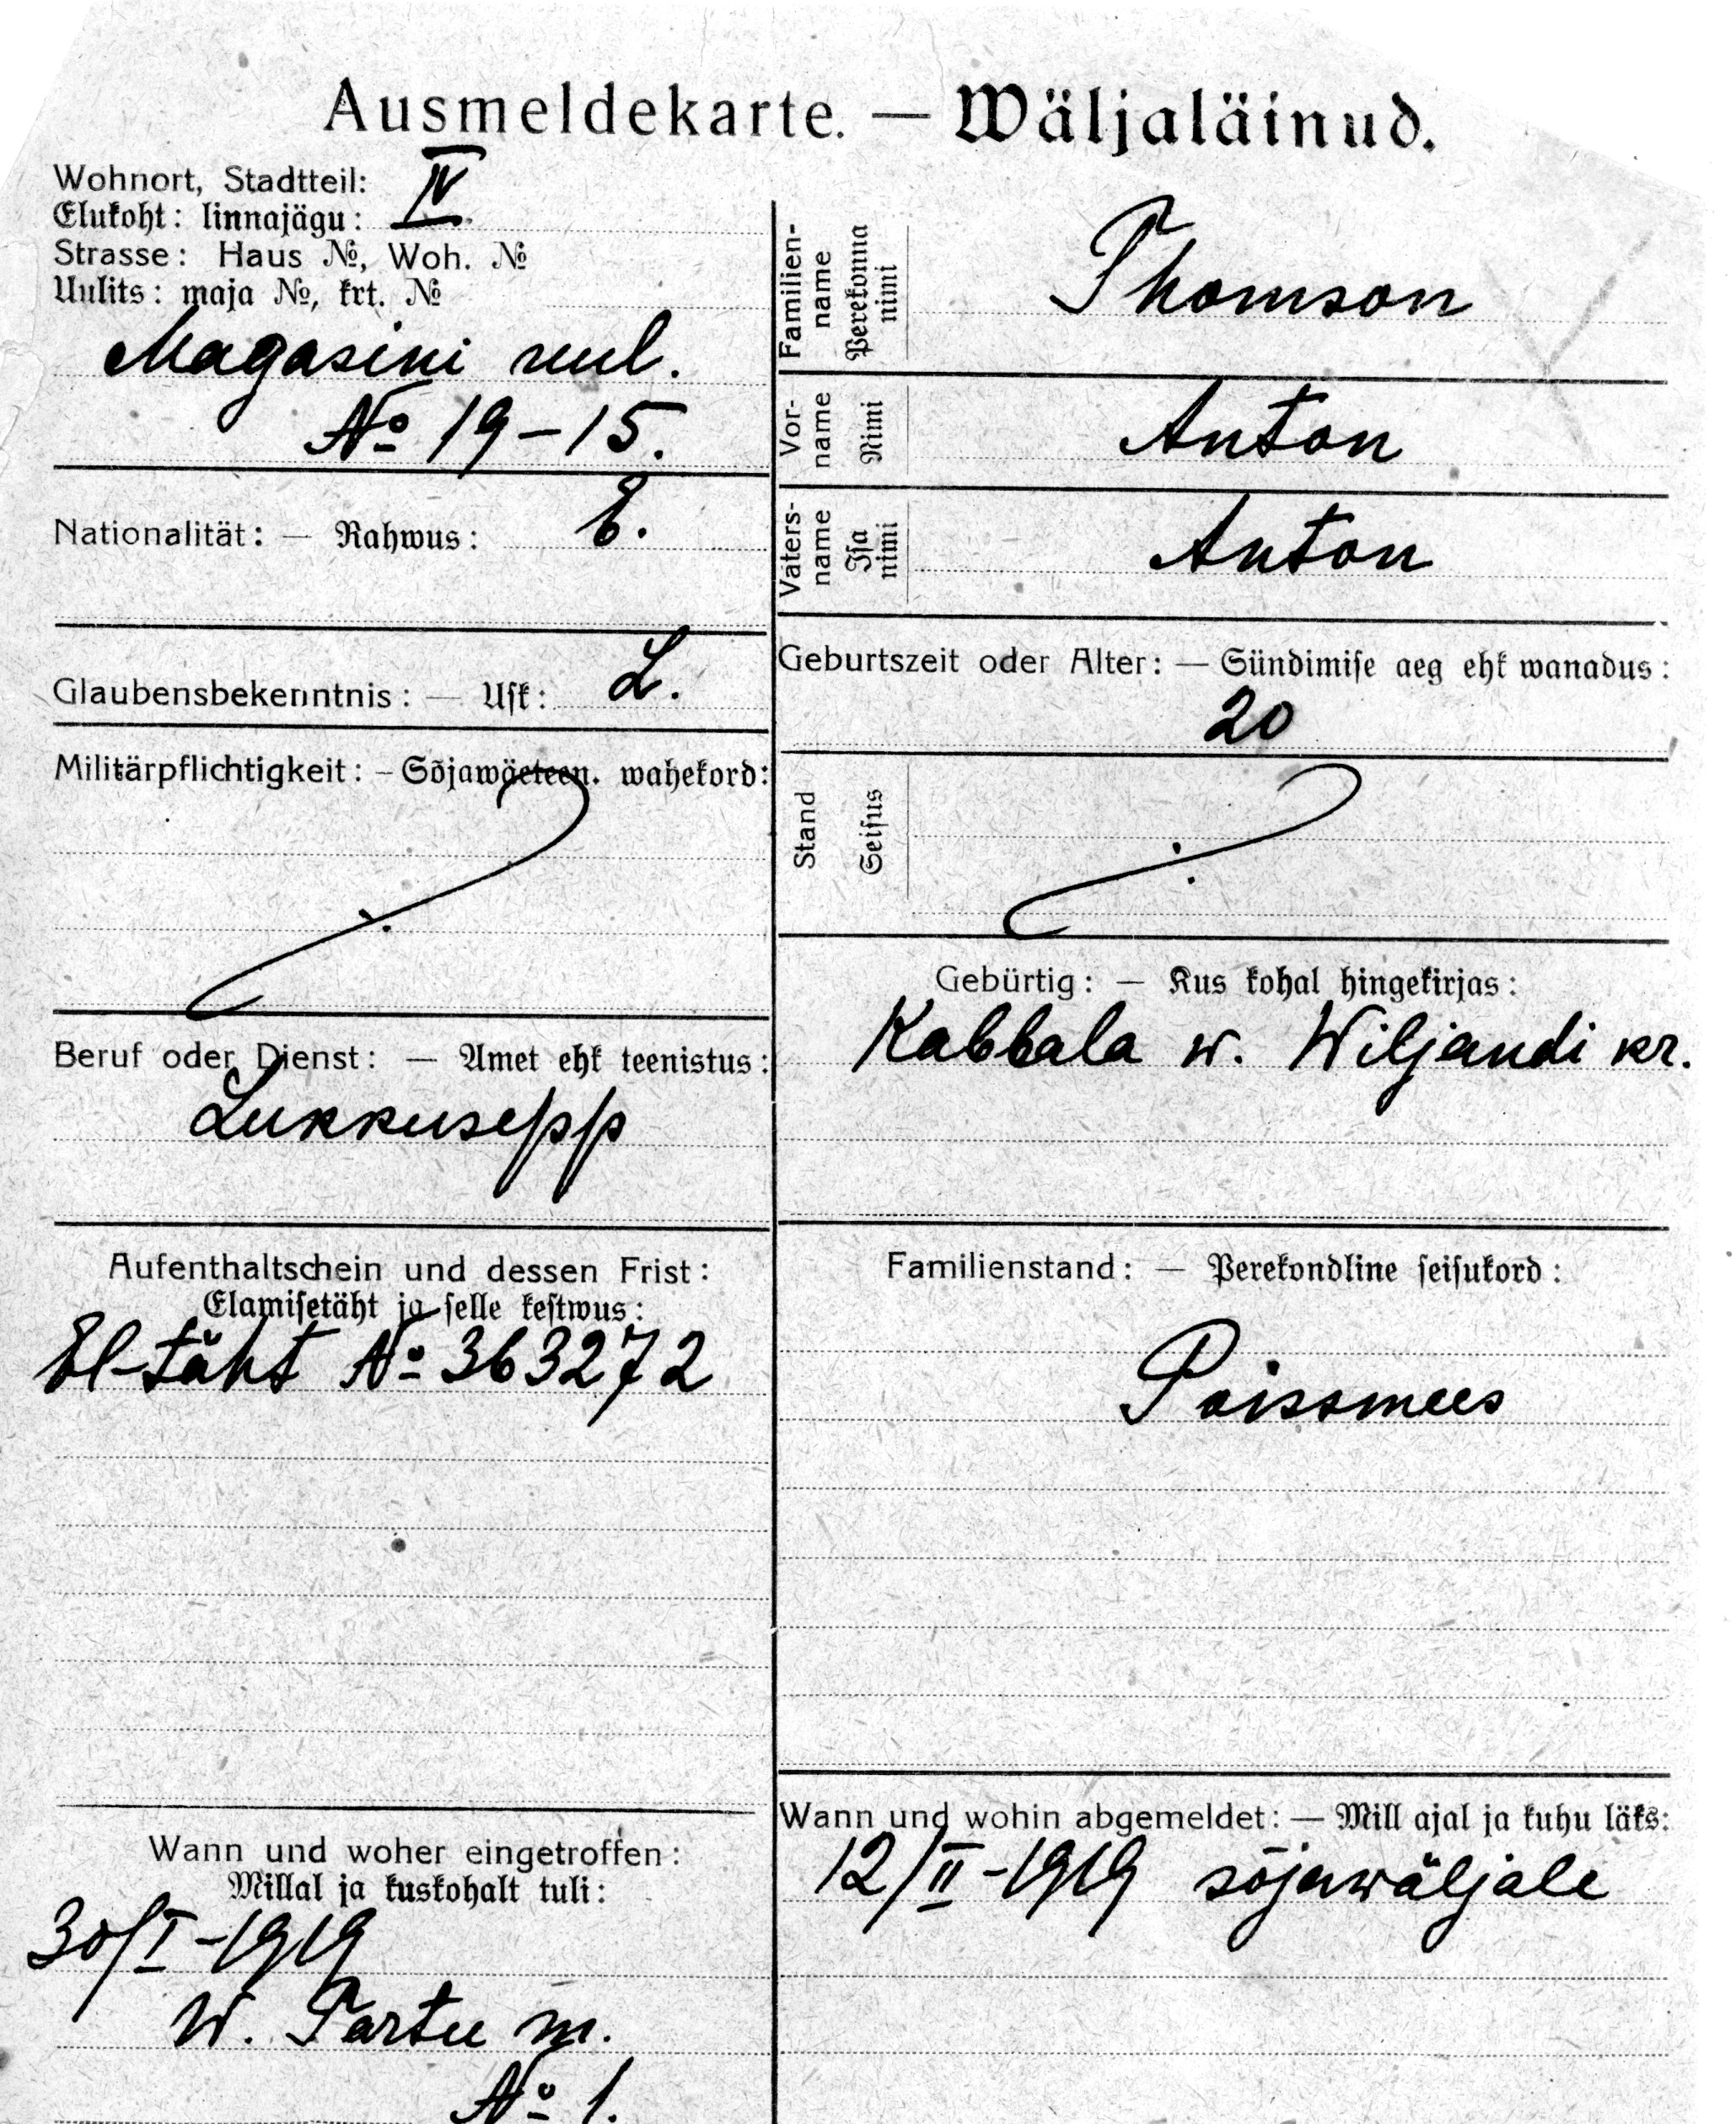 Ausmeldekarte. — Wäljaläinud.
Wohnort, Stadtteil:
Elukoht: linnajägu: IV
Strasse: Haus №, Woh. №
Uulits: maja №, krt. №
Magasini uul.
№ 19-15.
Nationalität: — Rahwus: E.
Glaubensbekenntnis: — Usk: L.
Militärpflichtigkeit: - Sõjawäeteen. wahekord:
Beruf oder Dienst: — Amet ehk teenistus:
Lukkusepp
Aufenthaltschein und dessen Frist:
Elamisetäht ja selle kestwus:
El-täht № 363272
Wann und woher eingetroffen:
Millal ja kuskohalt tuli:
30/I-1919
W. Tartu m.
№ 1.
Familien-
name
Perekonna
nimi
Thomson
Vor-
name
Nimi
Anton
Vaters-
name
Isa
nimi
Anton
Geburtszeit oder Alter: — Sündimise aeg ehk wanadus:
20
Stand
Seisus
Gebürtig: — Kus kohal hingekirjas:
Kabbala w. Wiljandi kr.
Familienstand: — Perekondline seisukord:
Poissmees
Wann und wohin abgemeldet: — Mill ajal ja kuhu läks:
12/II-1919 sõjawäljale